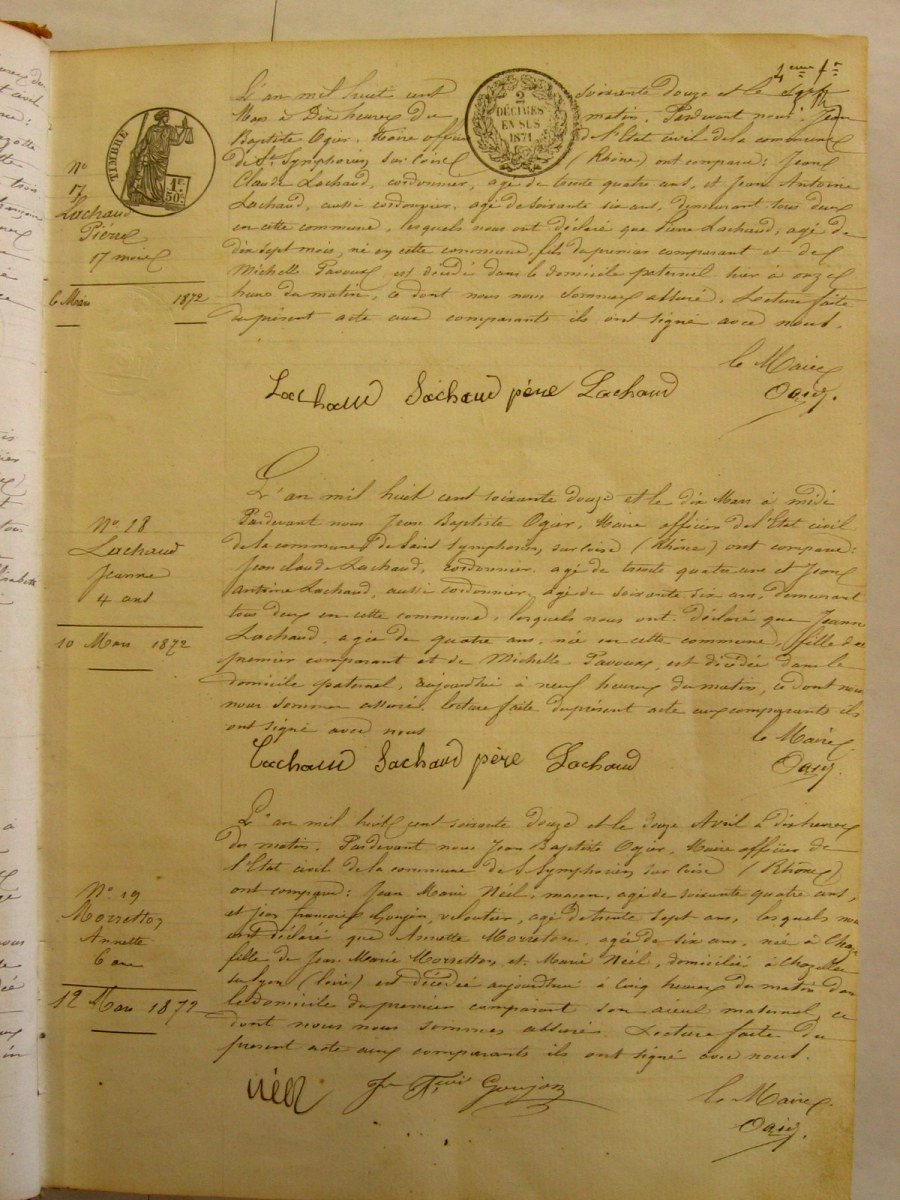 4eme fr
TIMBRE
1F. 50c.
2
DÉCIMES
EN SUS
1871
No
17
Lachaud
Pierre
17 mois
6 Mars 1872
L'an mil huit cent soixante douze et le sept
Mars à Dix heures du matin, Pardevant nous Jean
Baptiste Ogier, Maire officier de l'Etat civil de la commune
de St Symphorien sur Coise (Rhône) ont comparu: Jean
Claude Lachaud, cordonnier, agé de trente quatre ans, et Jean Antoine
Lachaud, aussi cordonnier, agé de soixante six ans, demeurant tous deux
en cette commune, lesquels nous ont déclaré que Pierre Lachaud, agé de
dix sept mois, né en cette commune, fils du premier comparant et de
Michelle Pavoux, est décédé dans le domicile paternel hier à onze
heures du matin, ce dont nous nous sommes assuré. Lecture faite
du présent acte aux comparants ils ont signé avec nous.
le Maire
Lachaud Lachaud père Lachaud Ogier
No 18
Lachaud
Jeanne
4 ans
10 Mars 1872
L'an mil huit cent soixante douze et le dix Mars à midi
Pardevant nous Jean Baptiste Ogier, Maire officier de l'Etat civil
de la commune de Saint Symphorien sur Coise (Rhône) ont comparu:
Jean claude Lachaud, cordonnier, agé de trente quatre ans et Jean
Antoine Lachaud, aussi cordonnier, agé de soixante six ans, demeurant
tous deux en cette commune, lesquels nous ont déclaré que Jeanne
Lachaud, agée de quatre ans, née en cette commune, fille du
premier comparant et de Michelle Pavoux, est décédée dans le
domicile paternel, aujourd'hui à neuf heures du matin, ce dont nous
nous sommes assuré. Lecture faite du présent acte aux comparants ils
ont signé avec nous
le Maire
Lachaud Lachaud père Lachaud Ogier
No 19
Morretton
Annette
6 ans
12 Mars 1872
L'an mil huit cent soixante douze et le douze Avril à dix heures
du matin, Pardevant nous Jean Baptiste Ogier, Maire officier de
l'Etat civil de la commune de St Symphorien sur Coise (Rhône)
ont comparu: Jean Marie Néel, maçon, agé de soixante quatre ans,
et Jean françois Goujon, veloutier, agé de trente sept ans, lesquels nous
ont déclaré que Annette Morretton, agée de six ans, née à
fille de Jean Marie Morretton et Marie Néel, domicilié à Chazelles
sur Lyon (Loire) est décédée aujourd'hui à cinq heures du matin dans
le domicile du premier comparant son aïeul maternel, ce
dont nous nous sommes assuré. Lecture faite du
présent acte aux comparants ils ont signé avec nous.
Néel Goujon le Maire
Ogier